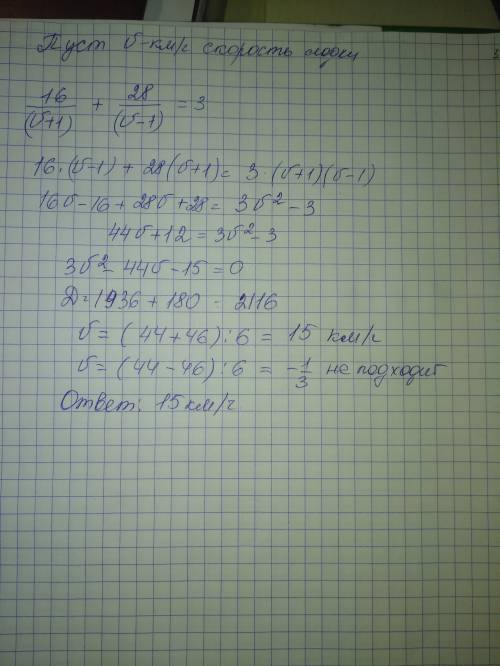 Пуст υ-км/ч скорость лодки
16/(υ+1) + 28/(υ-1) = 3
16·(υ-1) + 28(υ+1) = 3·(υ+1)(υ-1)
16υ-16+28υ+28 = 3υ²-3
44υ+12 = 3υ²-3
3υ²-44υ-15=0
Д=1936+180 = 2116
υ = (44+46):6 = 15 км/ч
υ = (44-46):6 = -1/3 не подходит
Ответ: 15км/ч